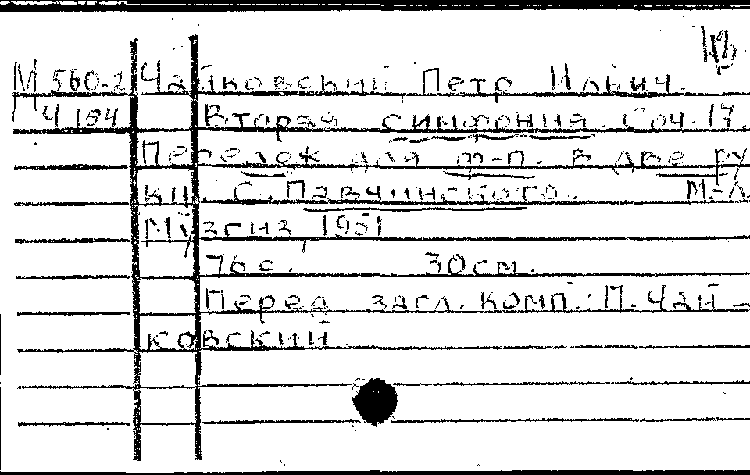 М 560-2 Чайковский, Петр Ильич.
Ч 194 Вторая симфония. Соч. 17.
Перелож. для ф-п. в две ру
ки С. Павчинского. М-Л
Музгиз, 1951
76 с. 30 см.
Перед загл. комп.: П. Чай-
ковский